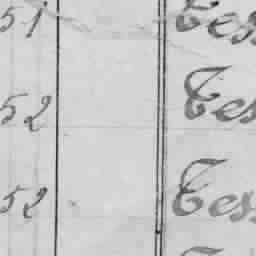 51 Tes
52 Tes
52 Tes